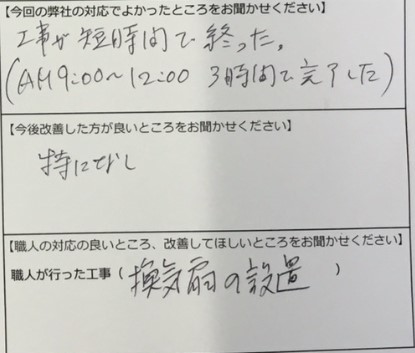 【今回の弊社の対応でよかったところをお聞かせください】
工事が短時間で終った。
(AM9:00～12:00 3時間で完了した)
【今後改善した方が良いところをお聞かせください】
特になし
【職人の対応の良いところ、改善してほしいところをお聞かせください】
職人が行った工事(換気扇の設置)